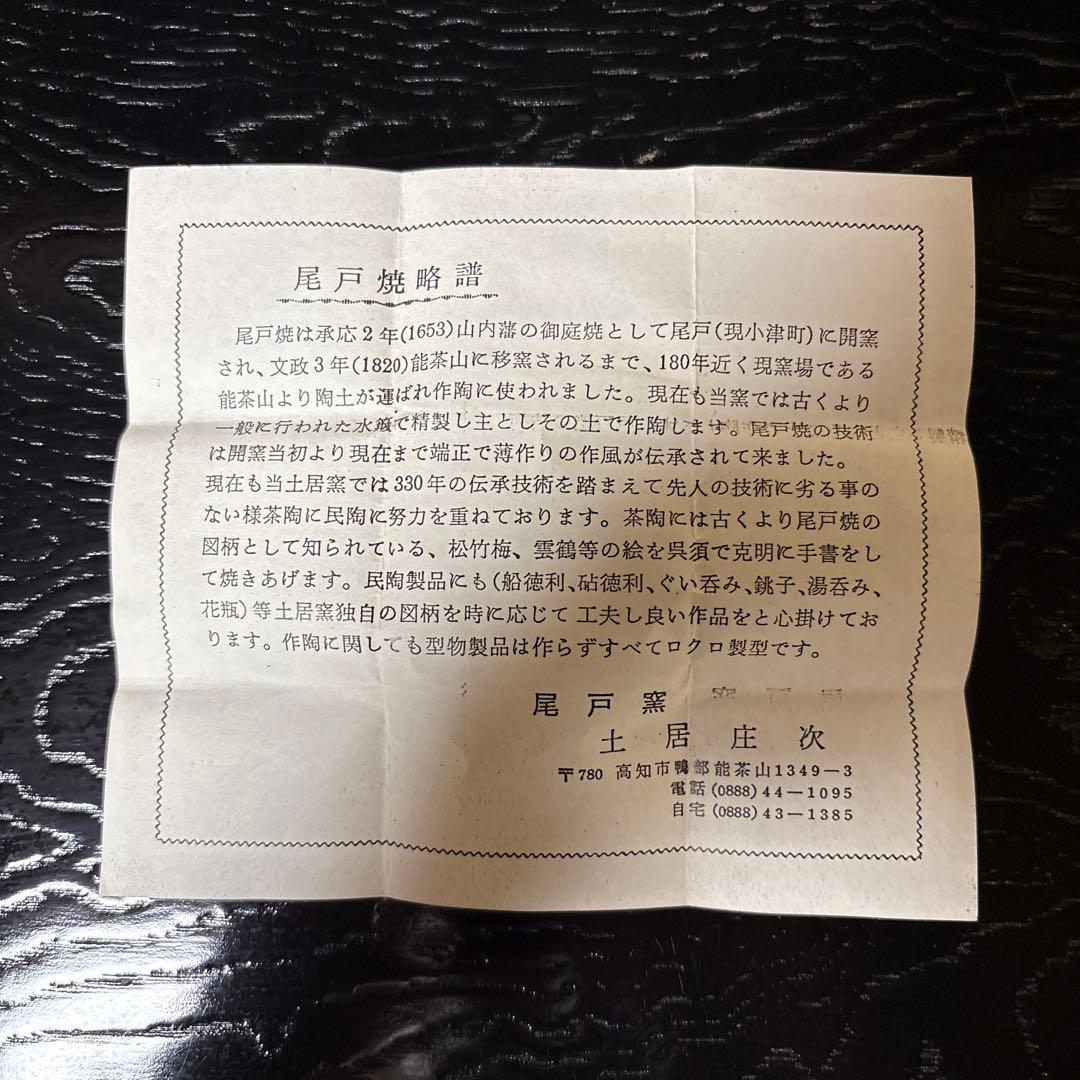 尾戸焼略譜
尾戸焼は承応2年(1653)山内藩の御庭焼として尾戸(現小津町)に開窯
され、文政3年(1820)能茶山に移窯されるまで、180年近く現窯場である
能茶山より陶土が運ばれ作陶に使われました。現在も当窯では古くより
一般に行われた水簸で精製し主としその土で作陶します。尾戸焼の技術
は開窯当初より現在まで端正で薄作りの作風が伝承されて来ました。
現在も当土居窯では330年の伝承技術を踏まえて先人の技術に劣る事の
ない様茶陶に民陶に努力を重ねております。茶陶には古くより尾戸焼の
図柄として知られている、松竹梅、雲鶴等の絵を呉須で克明に手書をし
て焼きあげます。民陶製品にも(船徳利、砧徳利、ぐい呑み、銚子、湯呑み、
花瓶)等土居窯独自の図柄を時に応じて工夫し良い作品をと心掛けてお
ります。作陶に関しても型物製品は作らずすべてロクロ製型です。
尾戸窯
土居庄次
〒780 高知市鴨部能茶山1349−3
電話(0888)44−1095
自宅(0888)43−1385